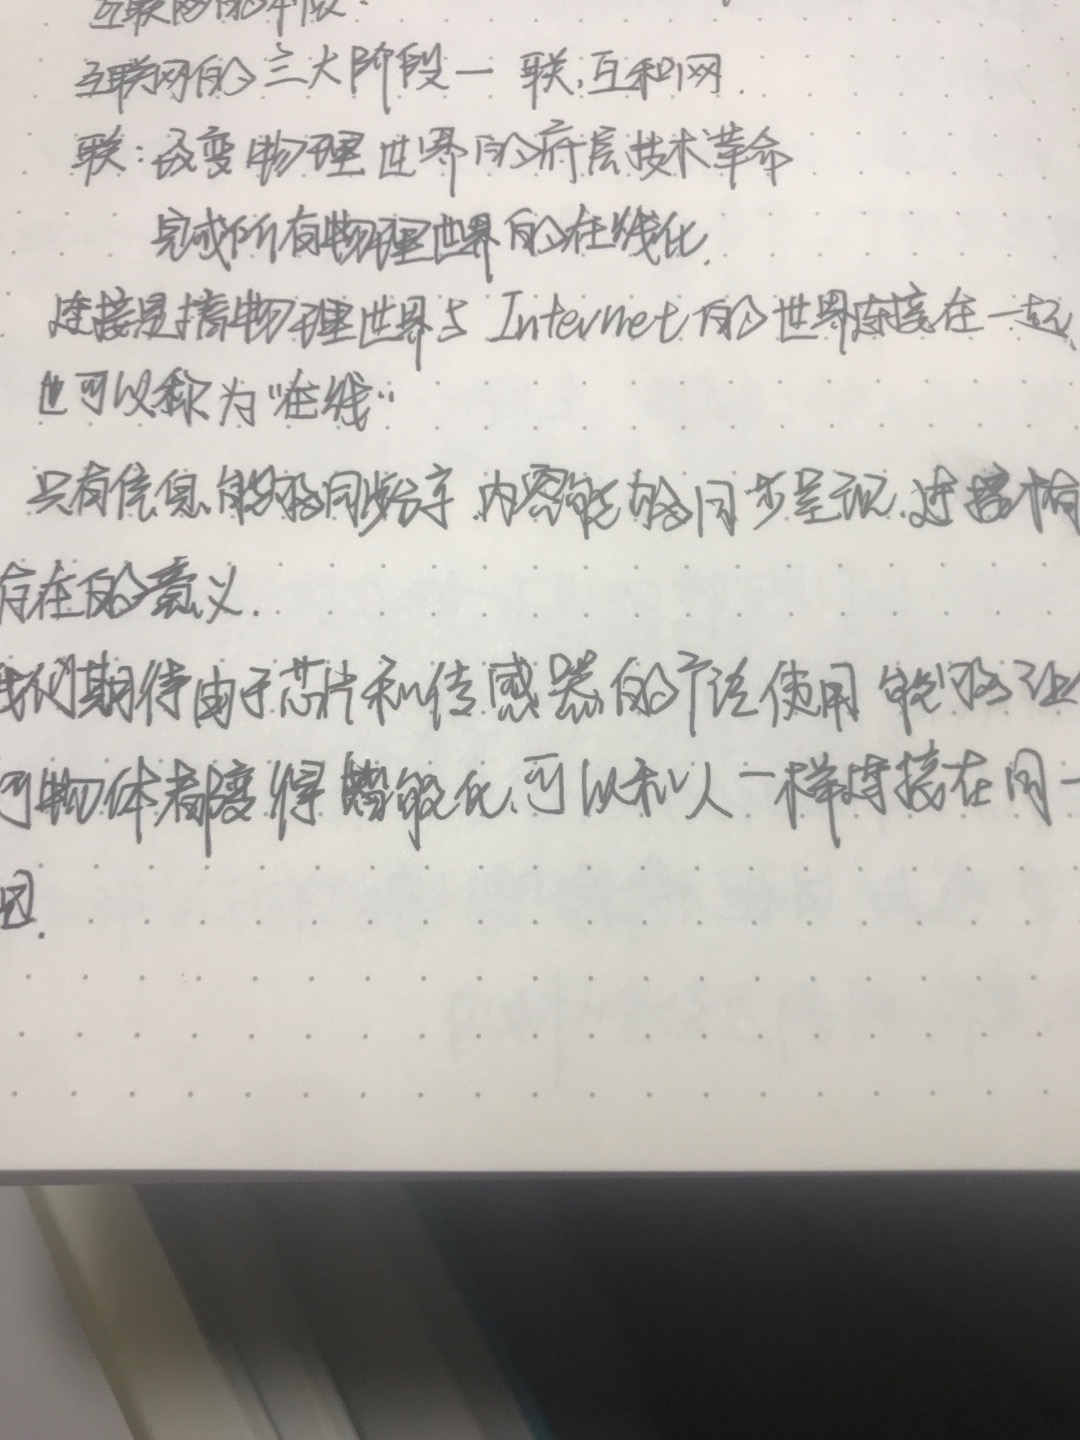 互联网的
互联网的三大阶段一联,互和网
联:改变物理世界的底层技术革命
完成所有物理世界的在线化.
连接是指物理世界与Internet的世界连接在一起,
也可以称为"在线"
只有信息能够同步分享,内容能够同步呈现,连接才有
存在的意义.
我们期待由于芯片和传感器的广泛使用能够让
何物体都变得智能化,可以和人一样连接在同一